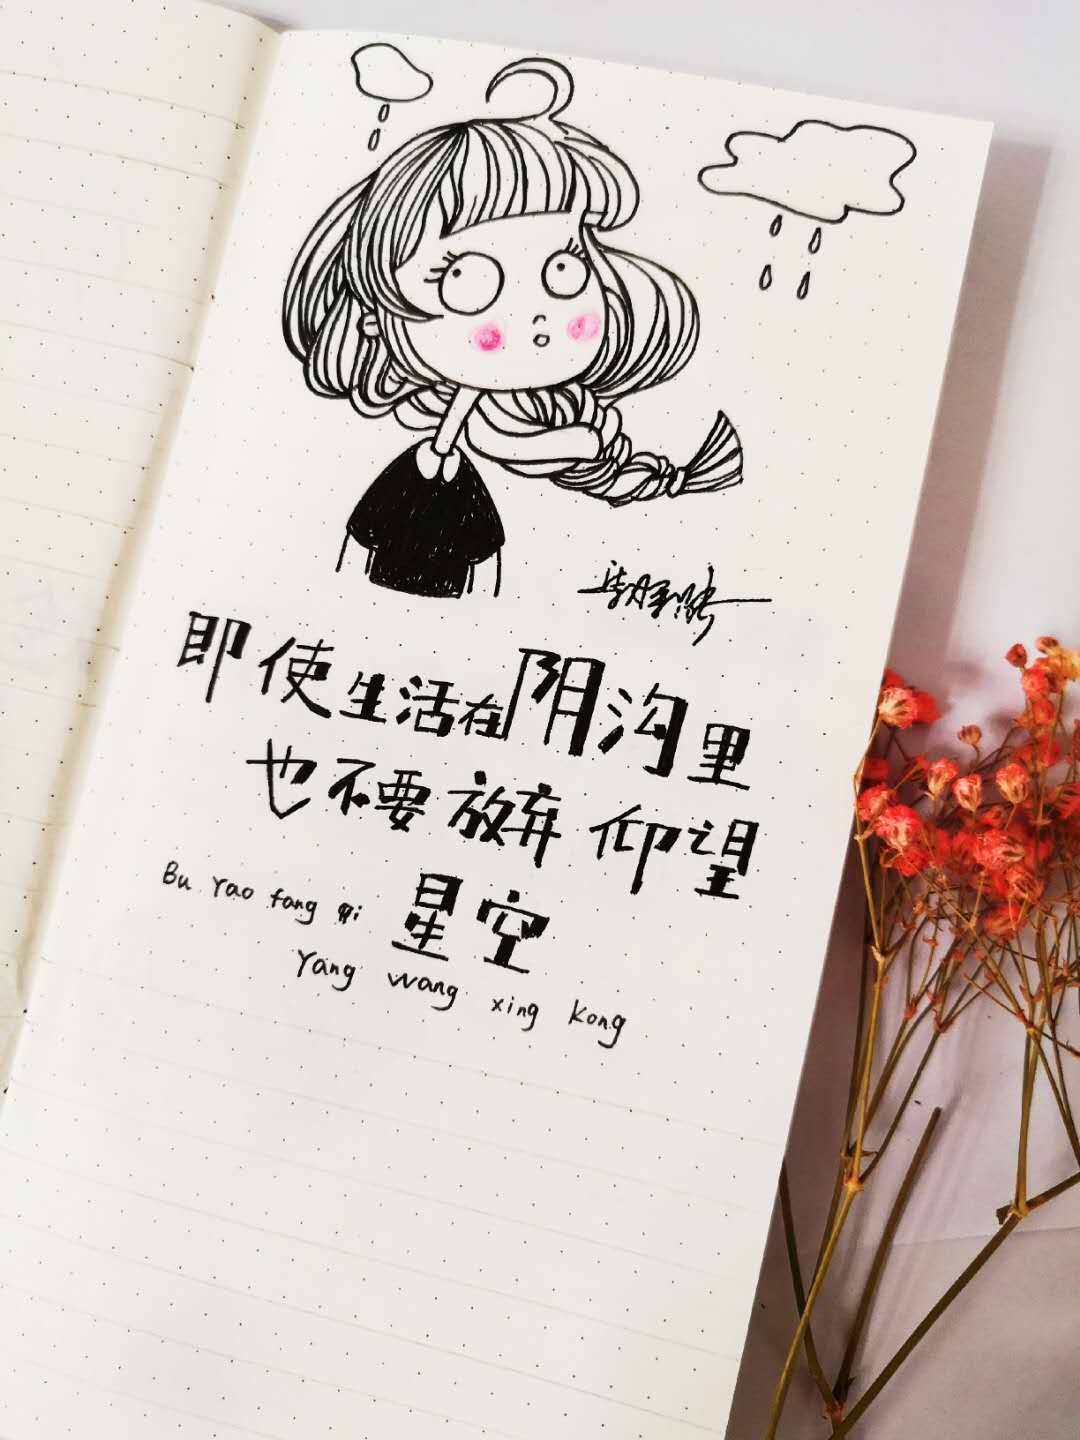 即使生活在阴沟里
也不要放弃仰望
星空
Bu Yao fang qi
Yang wang xing kong